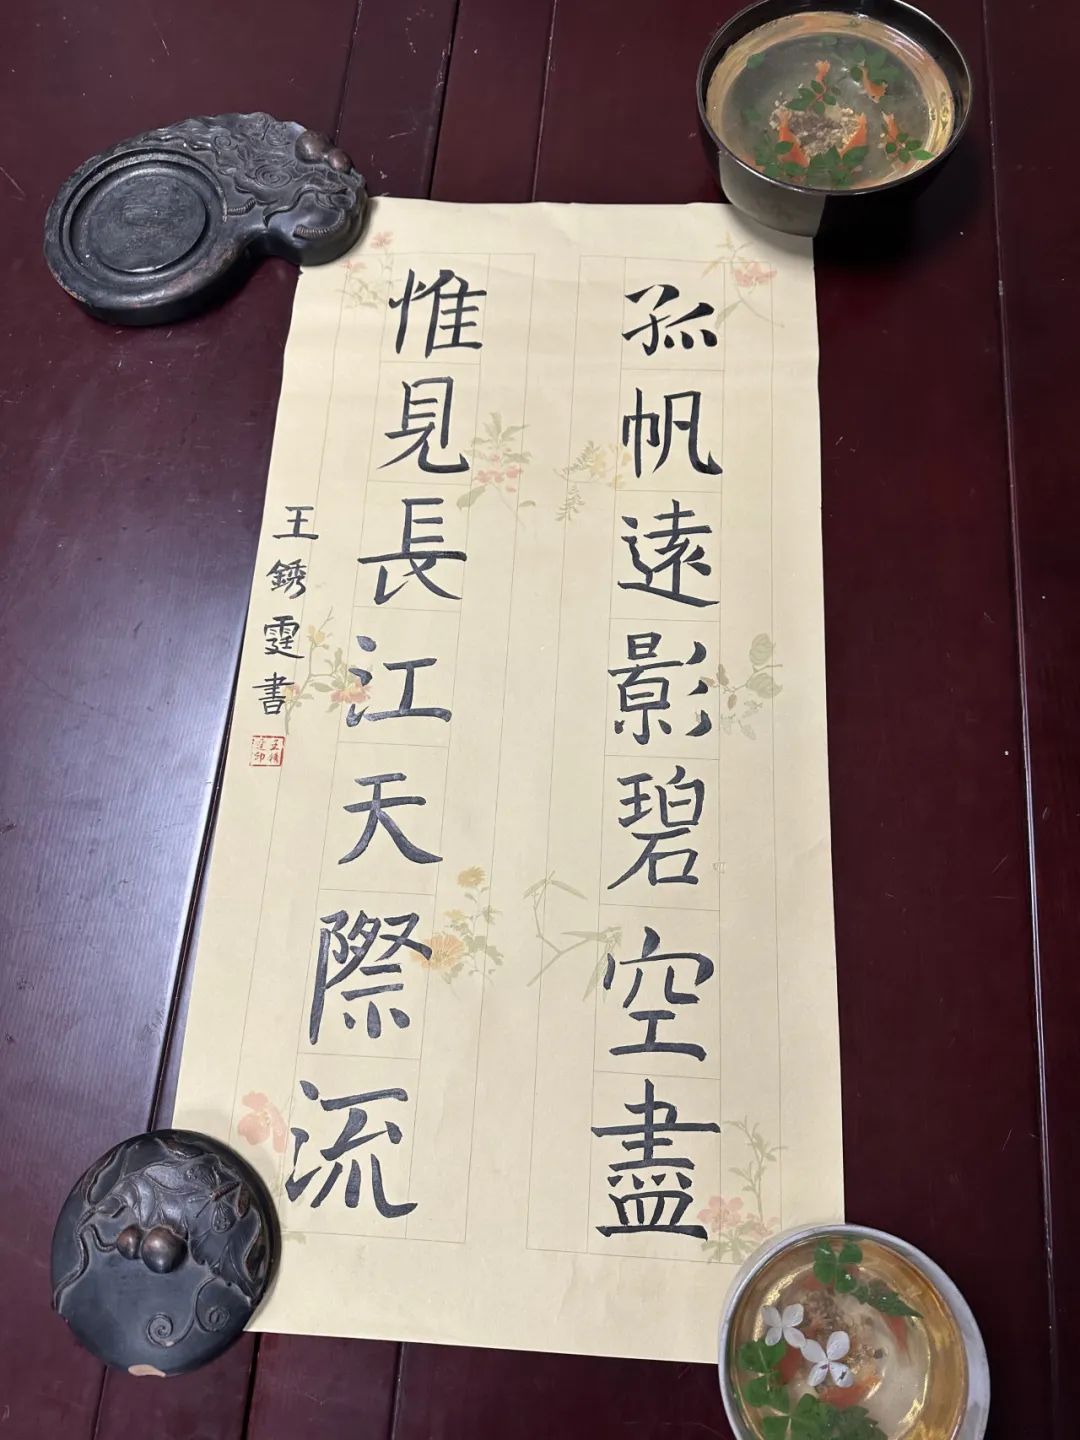 孤帆遠影碧空盡
惟見長江天際流
王銹霆書